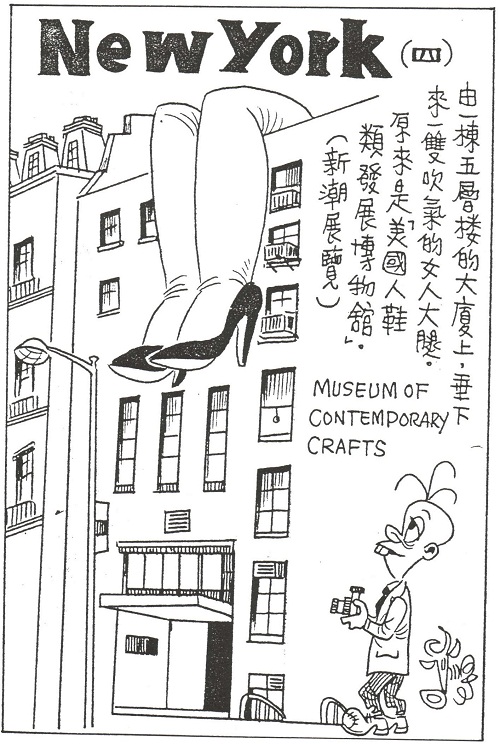 New York (四)
由一棟五層楼的大廈上，垂下
來一雙吹氣的女人大腿。
原來是「美國人鞋
類發展博物舘」。
（新潮展覽）
MUSEUM OF
CONTEMPORARY
CRAFTS